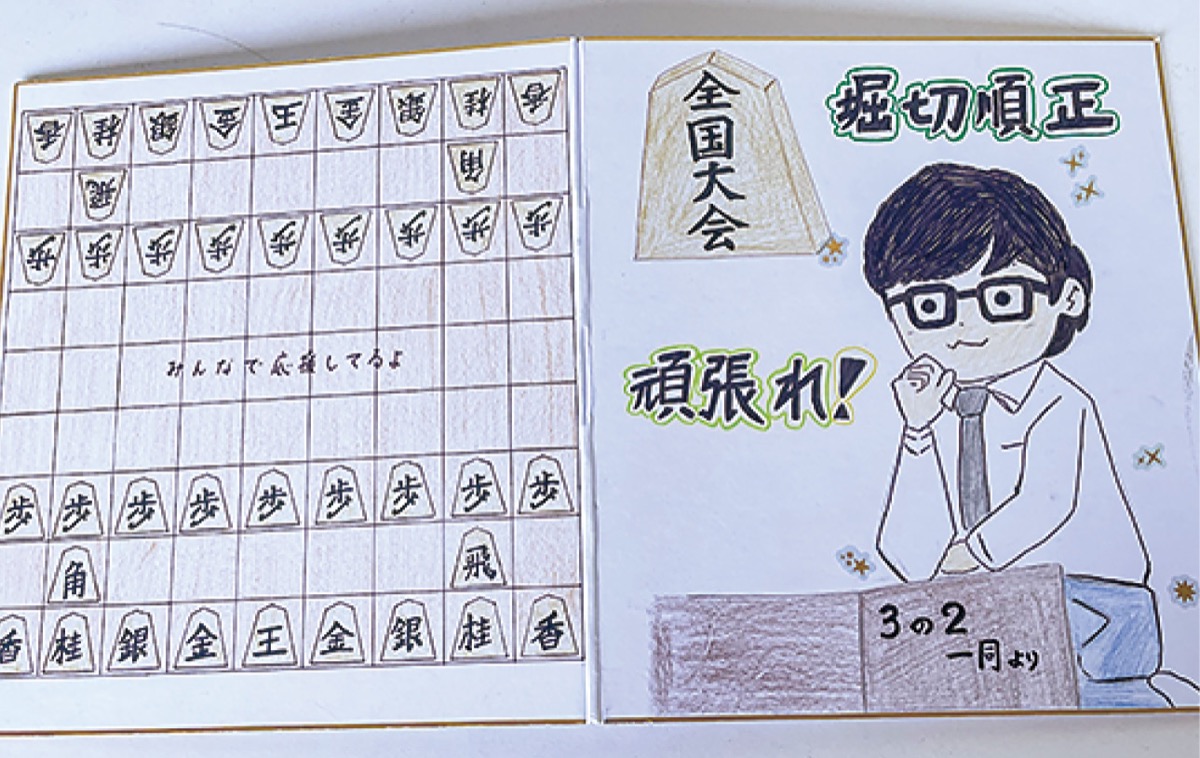 香 桂 銀 金 玉 金 銀 桂 香
飛 角
歩 歩 歩 歩 歩 歩 歩 歩 歩
みんなで応援してるよ
歩 歩 歩 歩 歩 歩 歩 歩 歩
角 飛
香 桂 銀 金 王 金 銀 桂 香
全国大会
堀切順正
頑張れ!
3の2
一同より